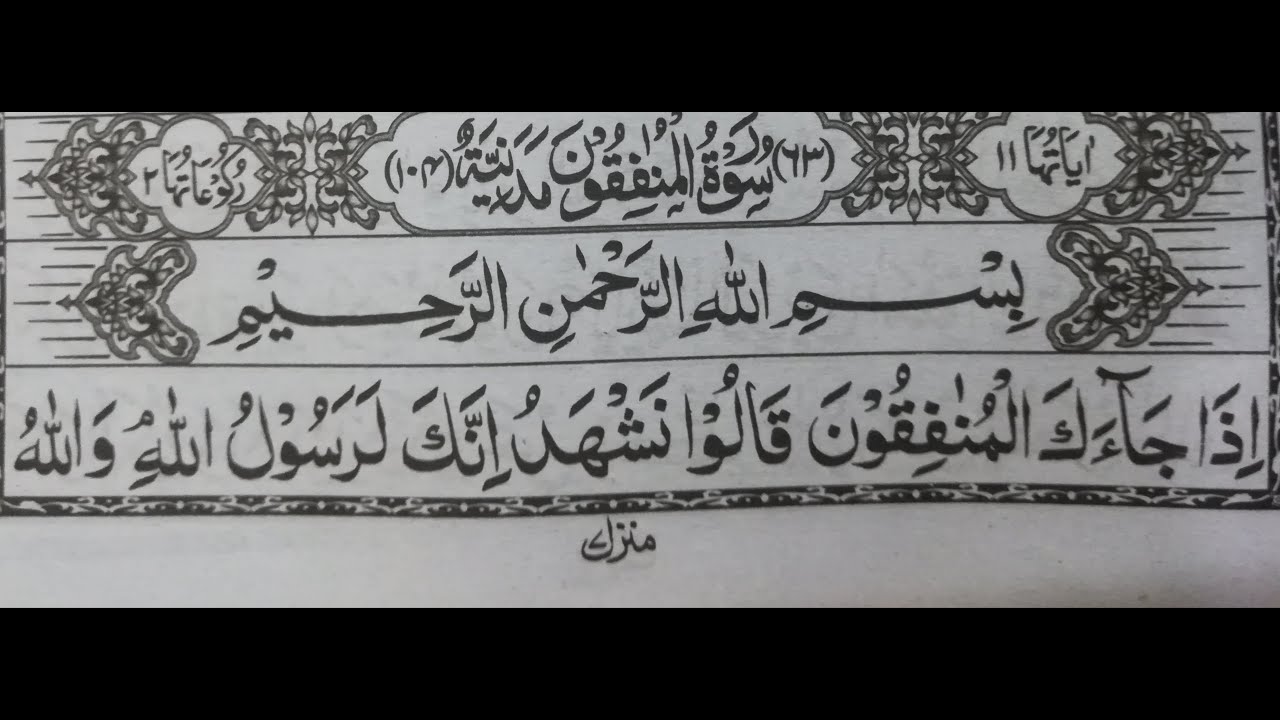 اٰيَاتُهَا ١١ (٦٣) سُوْرَةُ الْمُنٰفِقُوْنَ مَدَنِيَّةٌ (١٠۴) رُكُوْعَاتُهَا ٢
بِسْمِ اللّٰهِ الرَّحْمٰنِ الرَّحِيْمِ
اِذَا جَآءَكَ الْمُنٰفِقُوْنَ قَالُوْا نَشْهَدُ اِنَّكَ لَرَسُوْلُ اللّٰهِ ۘ وَاللّٰهُ
منزل ۷